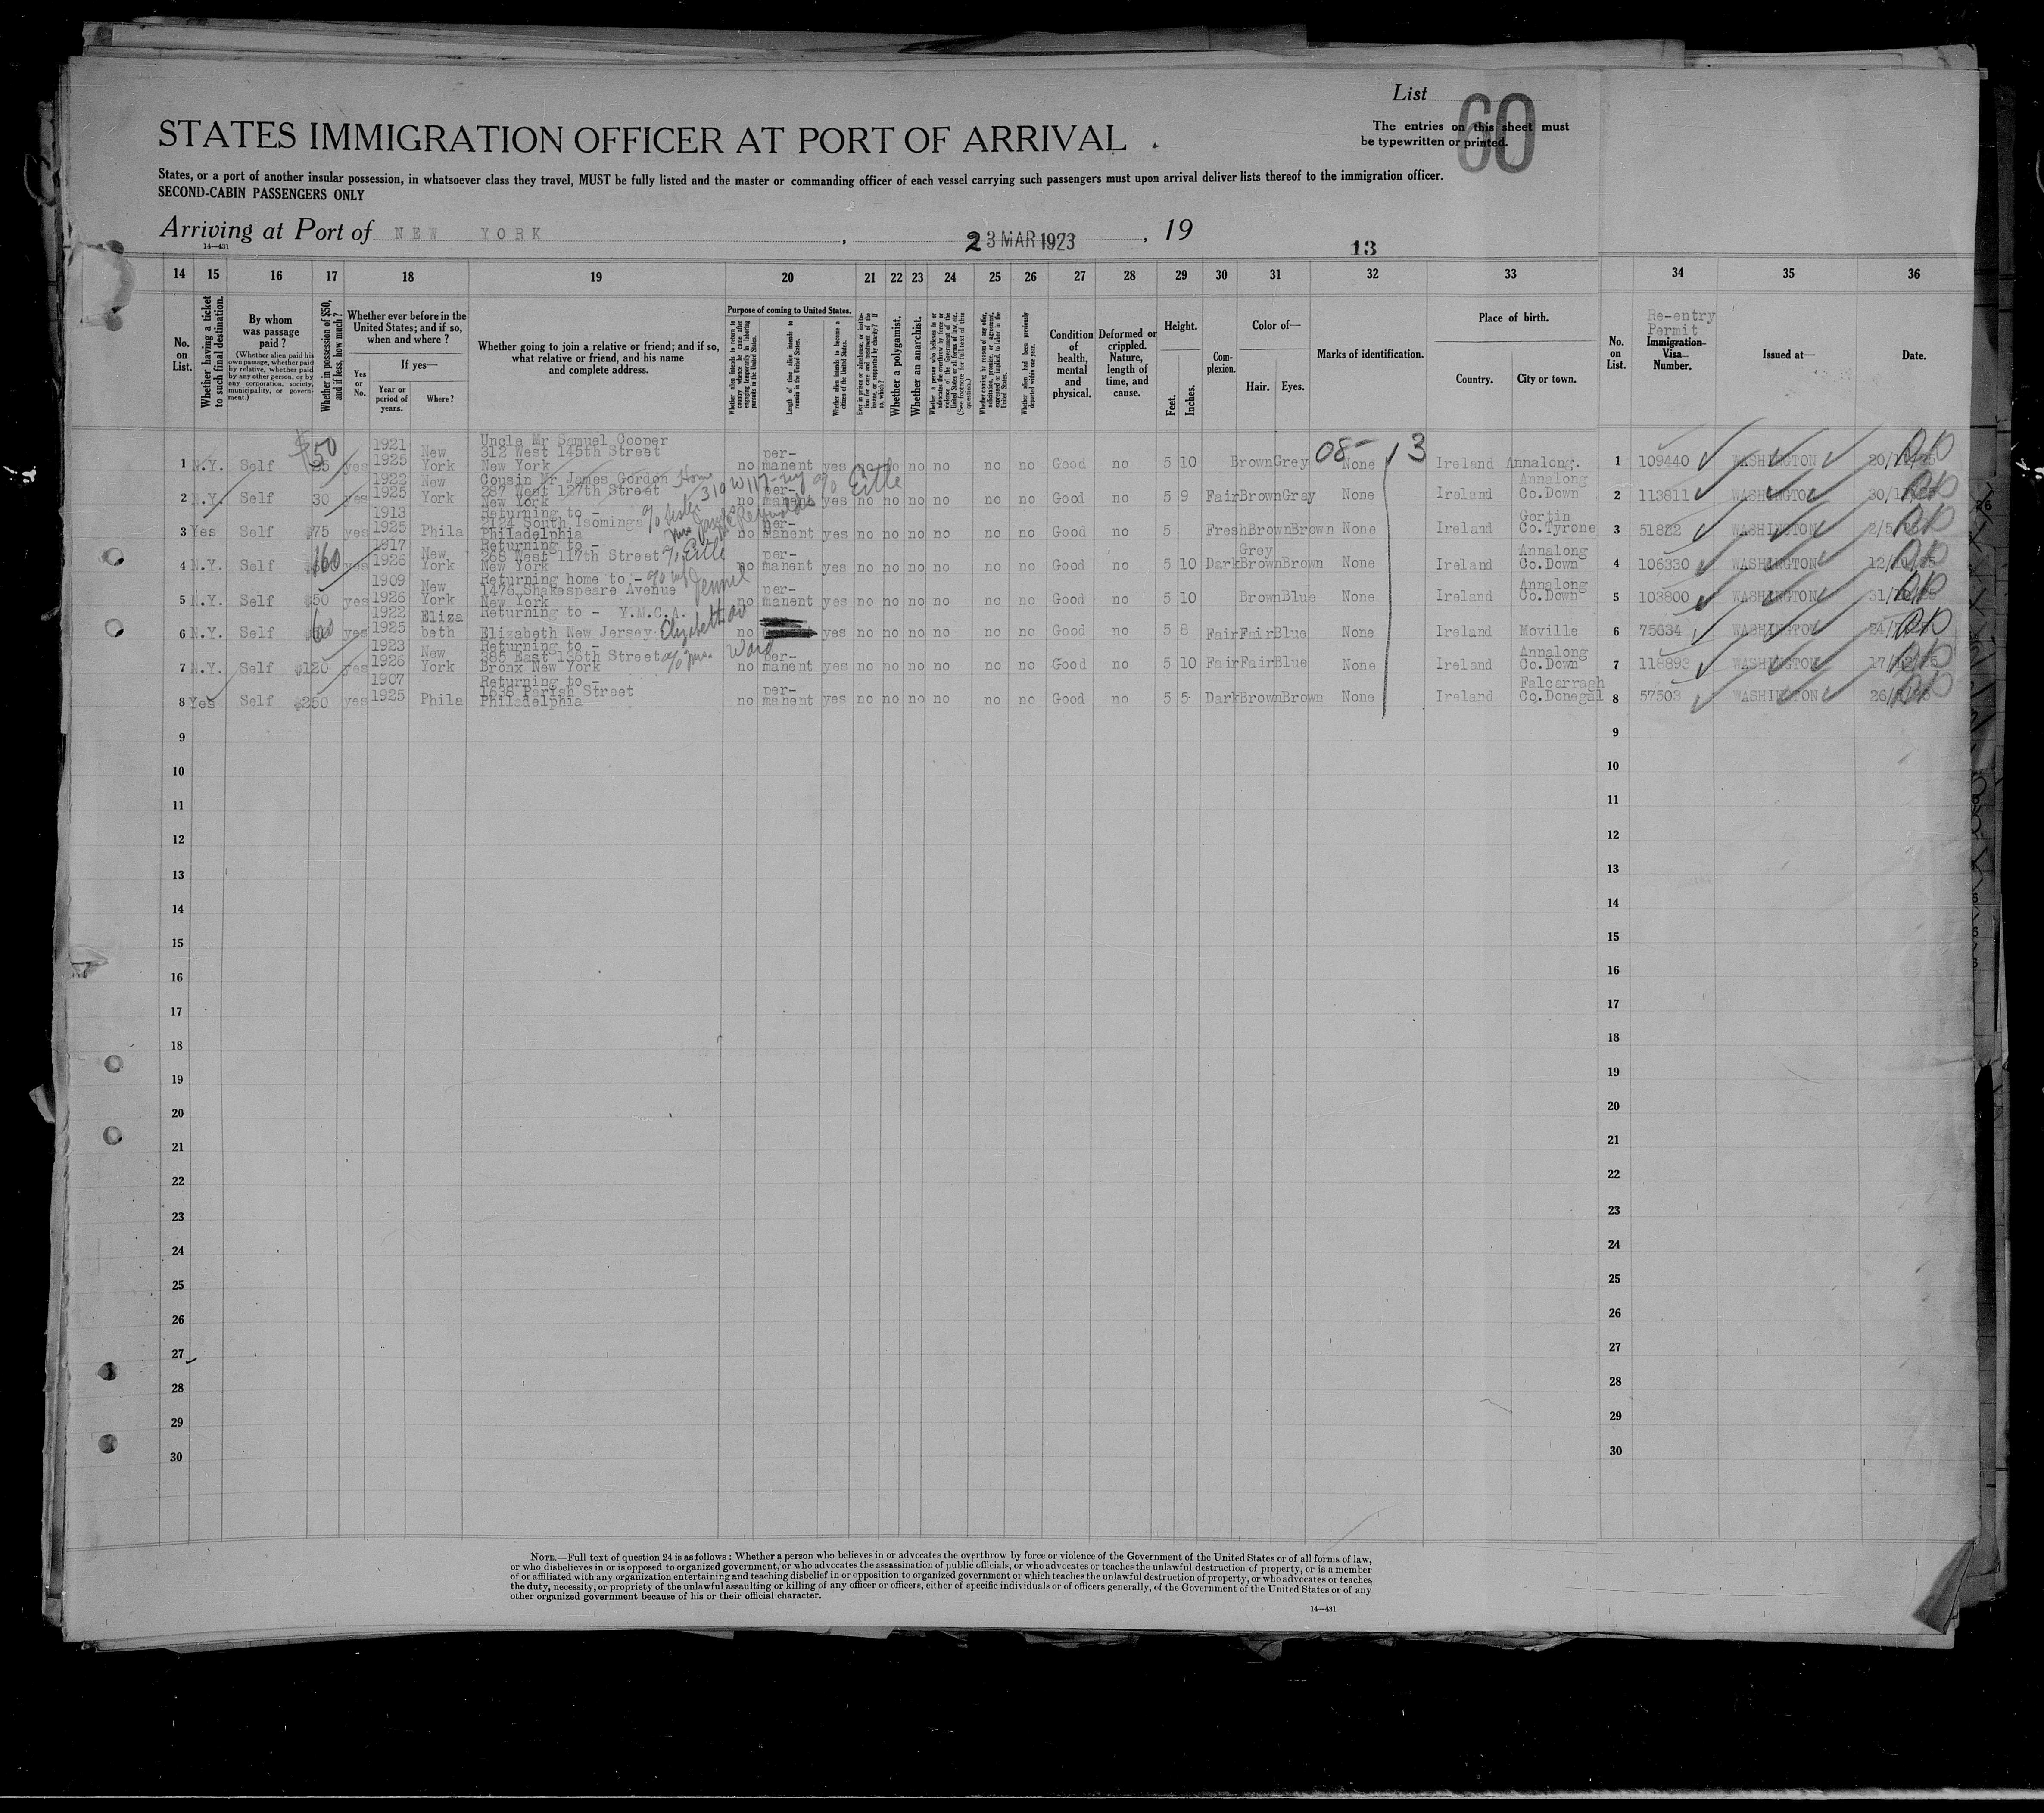 List
60
The entries on this sheet must
be typewritten or printed.
STATES IMMIGRATION OFFICER AT PORT OF ARRIVAL
States, or a port of another insular possession, in whatsoever class they travel, MUST be fully listed and the master or commanding officer of each vessel carrying such passengers must upon arrival deliver lists thereof to the immigration officer.
SECOND-CABIN PASSENGERS ONLY
Arriving at Port of NEW YORK, 23 MAR 1923, 19
14—431
13
14 15 16 17 18 19 20 21 22 23 24 25 26 27 28 29 30 31 32 33 34 35 36
No. on List.
Whether having a ticket to such final destination.
By whom was passage paid?
(Whether alien paid his own passage, whether paid by relative, whether paid by any other person, or by any corporation, society, municipality, or government.)
Whether in possession of $50, and if less, how much?
Whether ever before in the United States; and if so, when and where?
If yes—
Yes or No.
Year or period of years.
Where?
Whether going to join a relative or friend; and if so, what relative or friend, and his name and complete address.
Purpose of coming to United States.
Whether alien intends to return to country whence he came after engaging temporarily in laboring pursuits in the United States.
Length of time alien intends to remain in the United States.
Whether alien intends to become a citizen of the United States.
Whether a polygamist.
Whether an anarchist.
Whether alien had been previously deported within one year.
Condition of health, mental and physical.
Deformed or crippled. Nature, length of time, and cause.
Height.
Feet. Inches.
Complexion.
Color of—
Hair. Eyes.
Marks of identification.
Place of birth.
Country. City or town.
No. on List.
Re-entry Permit
Immigration Visa Number.
Issued at—
Date.
1 N.Y. Self $50 yes 1921 1925 New York Uncle Mr Samuel Cooper 312 West 145th Street New York no permanent yes no no no no no no Good no 5 10 Brown Grey None Ireland Annalong. 1 109440 WASHINGTON
08- 13
2 N.Y. Self 30 yes 1922 1925 New York Cousin Mr James Gordon 287 West 127th Street New York no permanent yes no no no no no no Good no 5 9 Fair Brown Gray None Ireland Annalong Co.Down 2 113811 WASHINGTON
3 Yes Self $75 yes 1913 1925 Phila Returning to - 2124 South Isominga Philadelphia no permanent yes no no no no no no Good no 5 Fresh Brown Brown None Ireland Gortin Co.Tyrone 3 51822 WASHINGTON
4 N.Y. Self 160 yes 1917 1926 New York Returning to - 268 West 117th Street New York no permanent yes no no no no no no Good no 5 10 Dark Grey Brown Brown None Ireland Annalong Co.Down 4 106330 WASHINGTON
5 N.Y. Self $50 yes 1909 1926 New York Returning home to - 1476 Shakespeare Avenue New York no permanent yes no no no no no no Good no 5 10 Brown Blue None Ireland Annalong Co.Down 5 103800 WASHINGTON
6 N.Y. Self 60 yes 1922 1925 Elizabeth Returning to - Y.M.C.A. Elizabeth New Jersey. no yes no no no no no no Good no 5 8 Fair Fair Blue None Ireland Moville 6 75634 WASHINGTON
7 N.Y. Self $120 yes 1923 1926 New York Returning to - 385 East 136th Street c/o Mrs. Ward Bronx New York no permanent yes no no no no no no Good no 5 10 Fair Fair Blue None Ireland Annalong Co.Down 7 118893 WASHINGTON
8 Yes Self $250 yes 1907 1925 Phila Returning to - 1638 Parish Street Philadelphia no permanent yes no no no no no no Good no 5 5 Dark Brown Brown None Ireland Falcarragh Co.Donegal 8 57503 WASHINGTON
9 9
10 10
11 11
12 12
13 13
14 14
15 15
16 16
17 17
18 18
19 19
20 20
21 21
22 22
23 23
24 24
25 25
26 26
27 27
28 28
29 29
30 30
NOTE.—Full text of question 24 is as follows: Whether a person who believes in or advocates the overthrow by force or violence of the Government of the United States or of all forms of law,
or who disbelieves in or is opposed to organized government, or who advocates the assassination of public officials, or who advocates or teaches the unlawful destruction of property, or is a member
of or affiliated with any organization entertaining and teaching disbelief in or opposition to organized government or which teaches the unlawful destruction of property, or who advocates or teaches
the duty, necessity, or propriety of the unlawful assaulting or killing of any officer or officers, either of specific individuals or of officers generally, of the Government of the United States or of any
other organized government because of his or their official character.
14—431